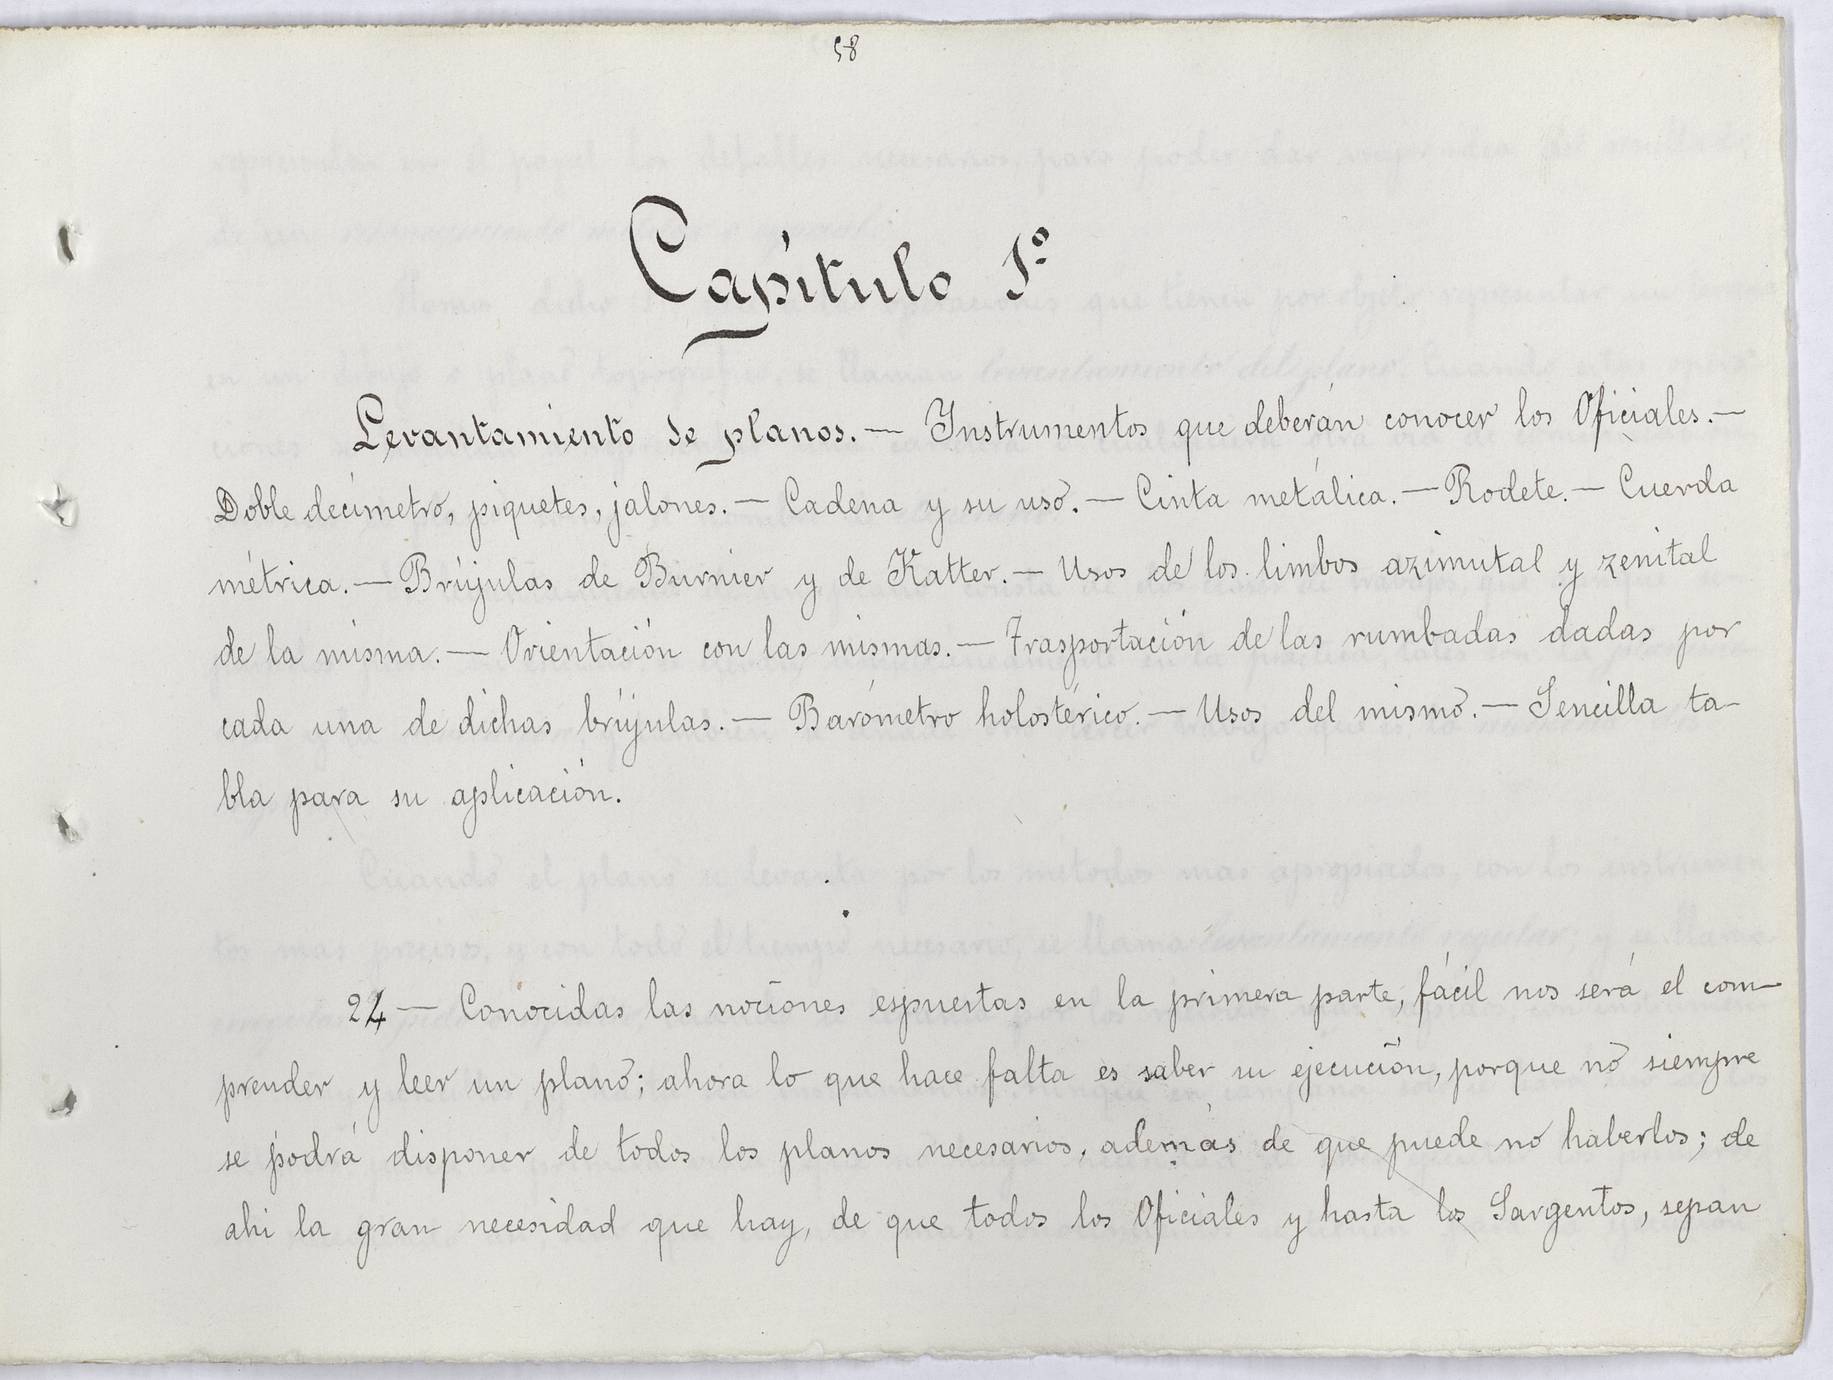 58
Capítulo 1º
Levantamiento de planos. — Instrumentos que deberán conocer los Oficiales. —
Doble decímetro, piquetes, jalones. — Cadena y su uso. — Cinta metálica. — Rodete. — Cuerda
métrica. — Brújulas de Burnier y de Katter. — Usos de los limbos azimutal y zenital
de la misma. — Orientación con las mismas. — Trasportación de las rumbadas dadas por
cada una de dichas brújulas. — Barómetro holostérico. — Usos del mismo. — Sencilla ta-
bla para su aplicación.
24 — Conocidas las nociones espuestas en la primera parte, fácil nos será el com-
prender y leer un plano; ahora lo que hace falta es saber su ejecución, porque no siempre
se podrá disponer de todos los planos necesarios, además de que puede no haberlos; de
ahi la gran necesidad que hay, de que todos los Oficiales y hasta los Sargentos, sepan